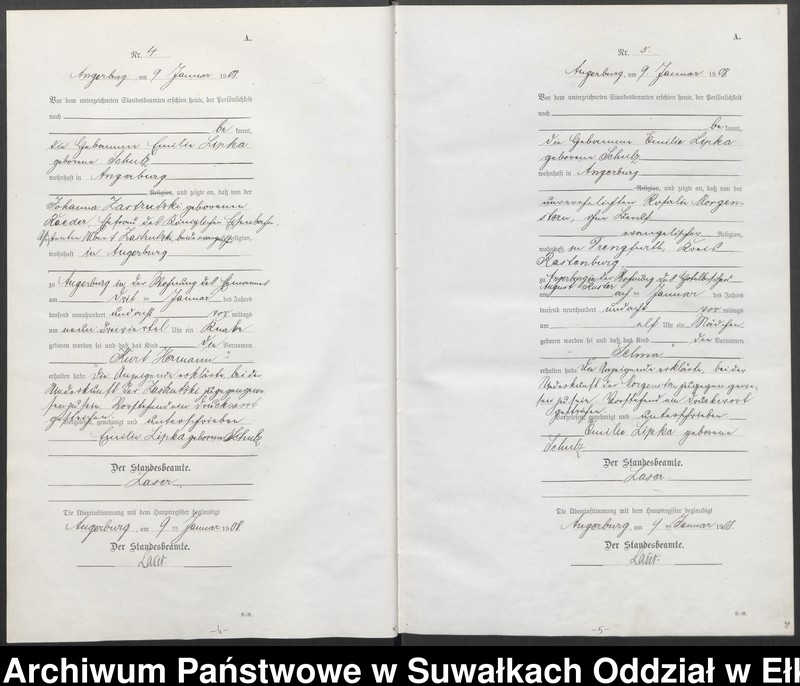 A.
Nr. 4
Angerburg, am 9 Januar 1908
Vor dem unterzeichneten Standesbeamten erschien heute, der Persönlichkeit
nach
be kannt,
die Hebamme Emilie Lipka
geborene Schulz
wohnhaft in Angerburg
Religion, und zeigte an, daß von der
Johanna Zastrutzki geborenen
Raeder, Ehefrau des Königlichen
Albert Zastrutzki, beide Religion,
wohnhaft in Angerburg
zu Angerburg in der Wohnung des Ehemannes
am Drei ten Januar des Jahres
tausend neunhundert und acht vor mittags
um neun dreiviertel Uhr ein Knabe
geboren worden sei und daß das Kind die Vornamen
Kurt Hermann
erhalten habe. Die Anzeigende erklärte, bei der
Niederkunft der Zastrutzki zugegen gewe-
sen zu sein. Vorstehend ein Druckwort
gestrichen.
Vorgelesen, genehmigt und unterschrieben
Emilie Lipka geborene Schulz
Der Standesbeamte.
Laser
Die Übereinstimmung mit dem Hauptregister beglaubigt
Angerburg, am 9 ten Januar 1908
Der Standesbeamte.
Laser.
-4-
3
A.
Nr. 5
Angerburg, am 9 Januar 1908
Vor dem unterzeichneten Standesbeamten erschien heute, der Persönlichkeit
nach
be kannt,
die Hebamme Emilie Lipka
geborene Schulz
wohnhaft in Angerburg
Religion, und zeigte an, daß von der
unverehelichten Rosalie Morgen-
stern, ohne Beruf
evangelischer Religion,
wohnhaft zu Drengfurth, Kreis
Rastenburg
zu Angerburg in der Wohnung des
August
am acht ten Januar des Jahres
tausend neunhundert und acht vor mittags
um elf Uhr ein Mädchen
geboren worden sei und daß das Kind den Vornamen
Selma
erhalten habe. Die Anzeigende erklärte, bei der
Niederkunft der Morgenstern zugegen gewe-
sen zu sein. Vorstehend ein Druckwort
gestrichen.
Vorgelesen, genehmigt und unterschrieben
Emilie Lipka geborene
Schulz
Der Standesbeamte.
Laser.
Die Übereinstimmung mit dem Hauptregister beglaubigt
Angerburg, am 9 ten Januar 1908.
Der Standesbeamte.
Laser.
-5-
Archiwum Państwowe w Suwałkach Oddział w Ełk